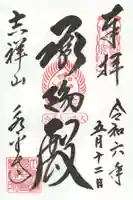 奉拝
令和六年
五月十二日
承陽殿
吉祥山
永平寺